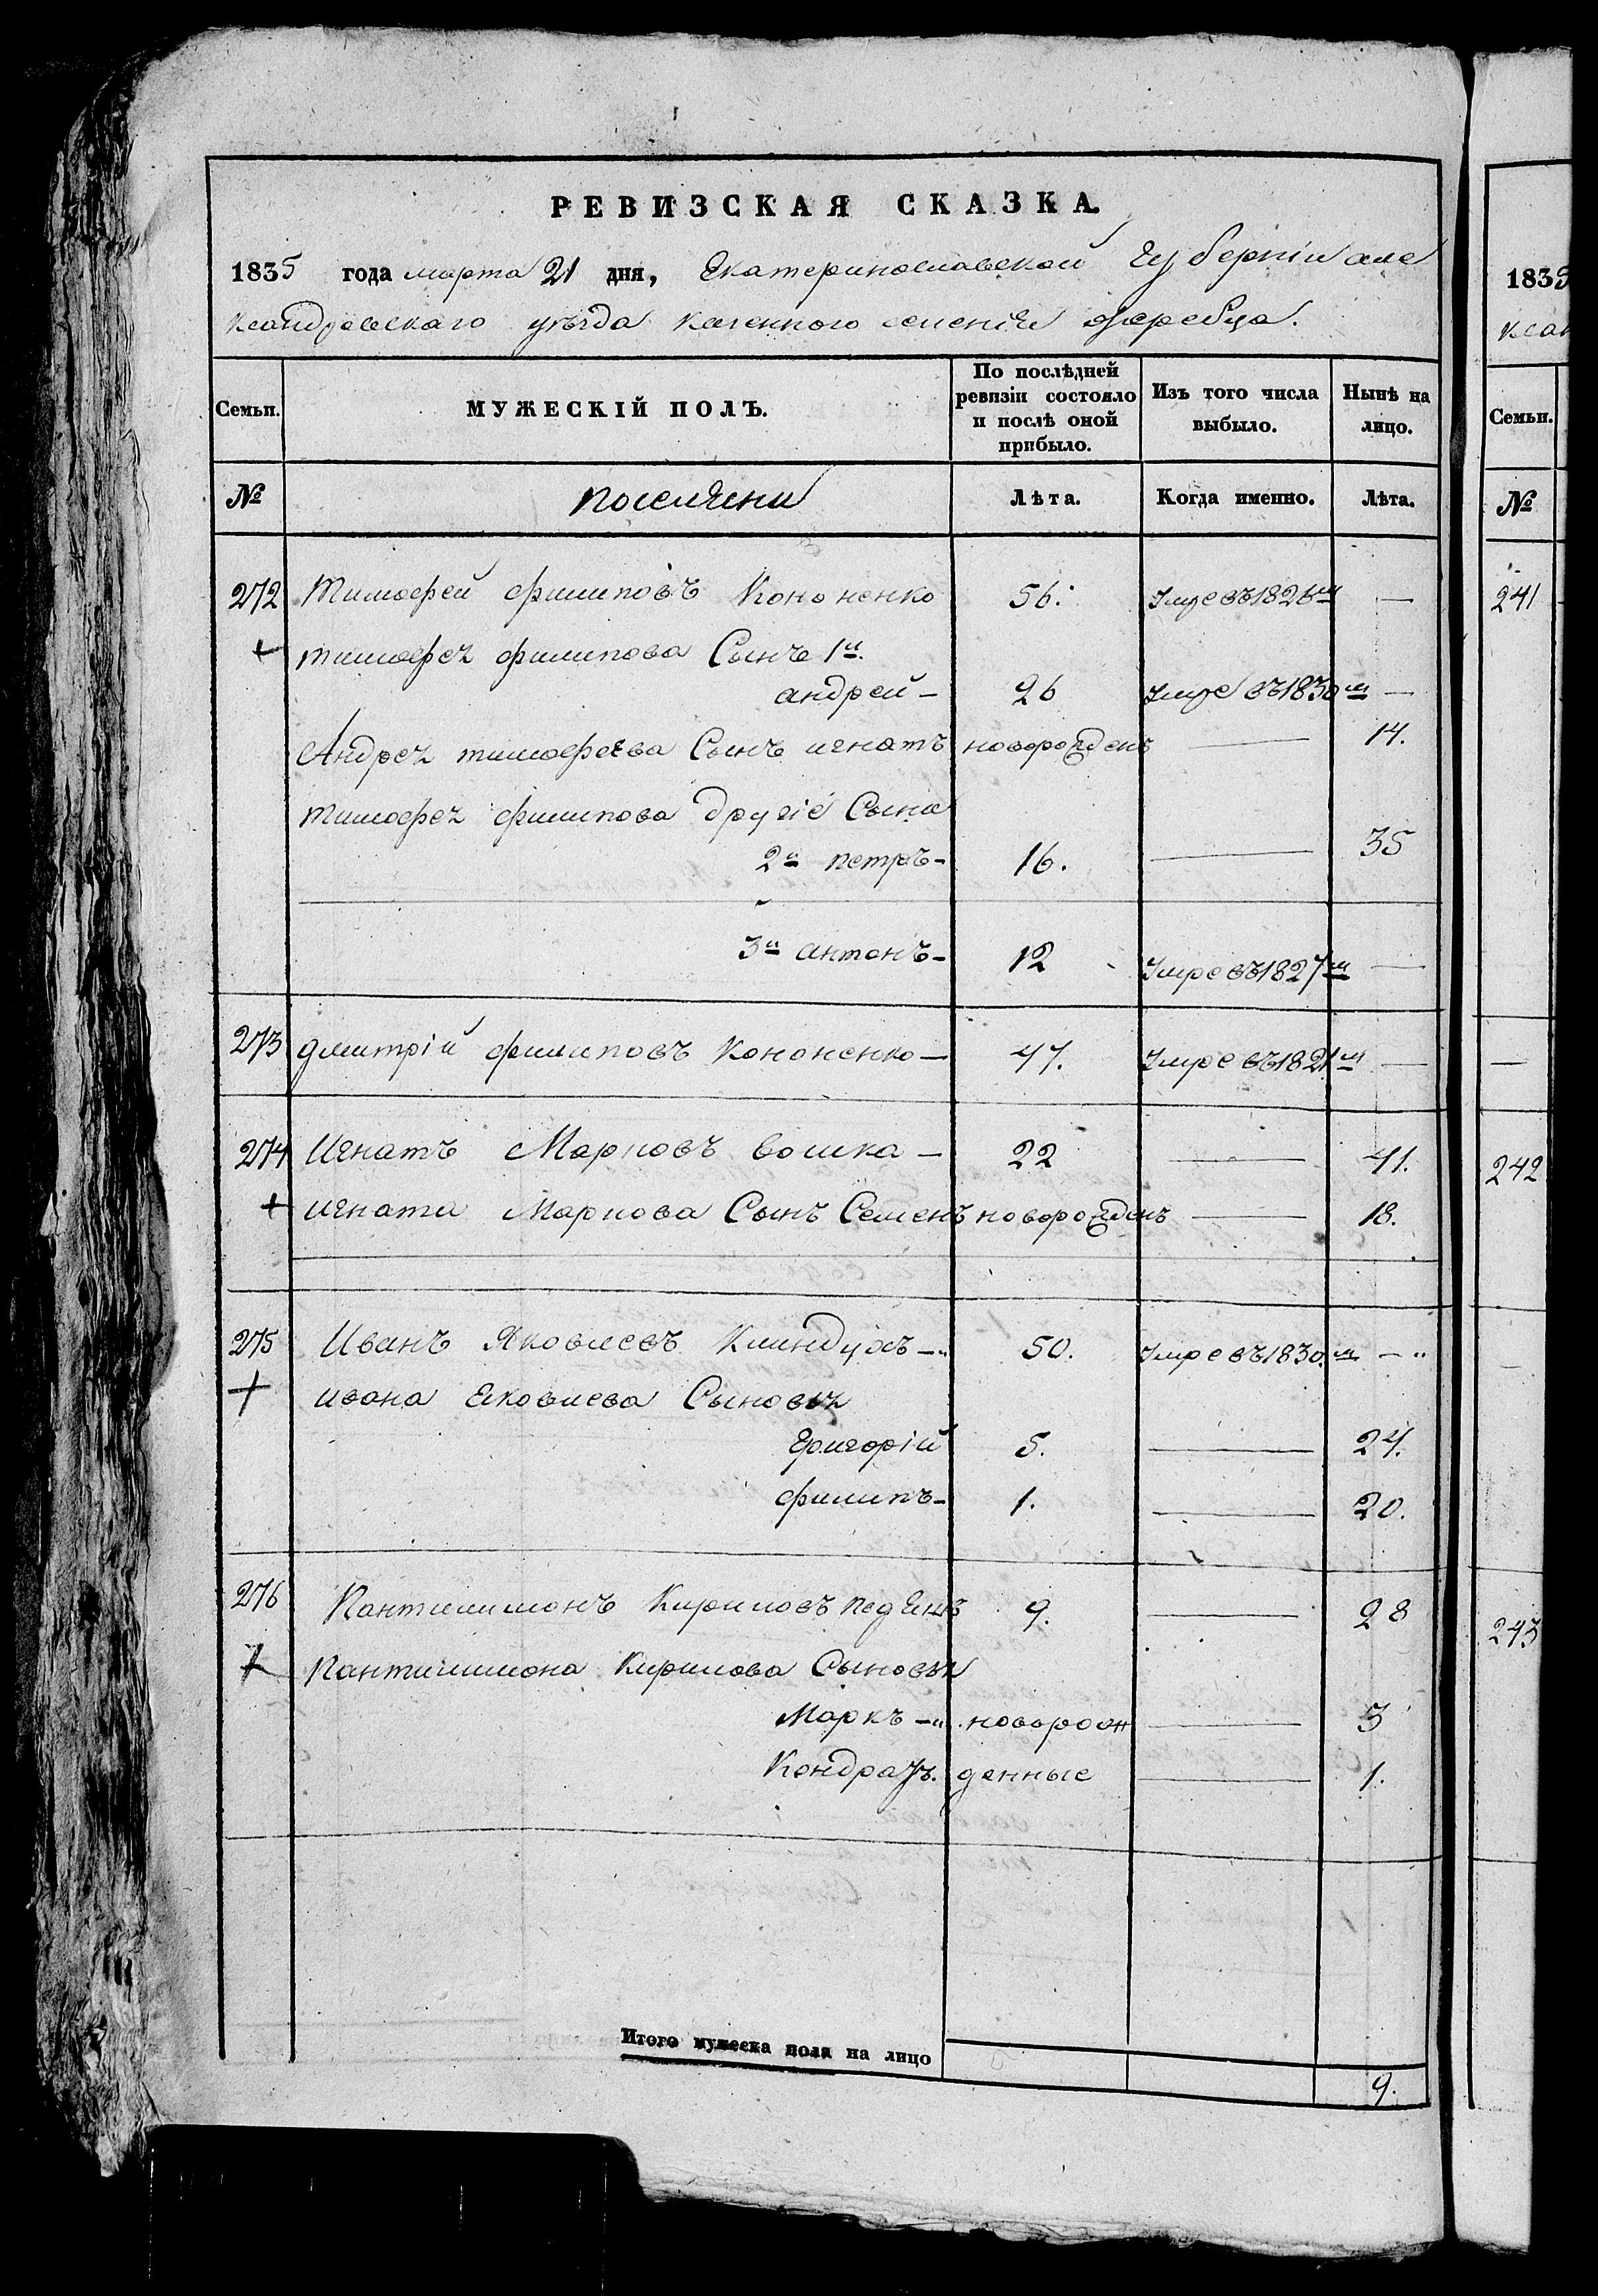 РЕВИЗСКАЯ СКАЗКА.
1835 года марта 21 дня, Екатеринославской Губернiи але
ксандровскаго уѣзда казенного селенiя жеребца.
Семьи. МУЖЕСКIЙ ПОЛЪ. По послѣдней ревизiи состояло и послѣ оной прибыло. Изъ того числа выбыло. Нынѣ на лицо.
№ поселяни Лѣта. Когда именно. Лѣта.
272 Тимофей филиповъ Кононенко 56. Умре въ 1826м —
тимофея филипова Сынъ 1й.
андрей — 26 Умре въ 1830м —
Андрея тимофеева Сынъ игнатъ новорожденъ — 14.
тимофея филипова другiе Сыны
2й петръ — 16. — 35
3й антонъ — 12 Умре въ 1827м —
273 дмитрiй филиповъ кононенко — 47. Умре въ 1821м —
274 Игнатъ Марковъ вошка — 22 — 41.
+ игната Маркова Сынъ Семенъ новорожденъ — 18.
275 Иванъ Яковлевъ Клиндухъ — 50. Умре въ 1830м —
+ ивана Яковлева Сыновья
Григорiй 5. — 24.
филипъ — 1. — 20.
276 Кантилимонъ Кириловъ 9. — 28
+ Кантилимона Кирилова Сыновья
Маркъ — новорож — 3
Кондратъ. денные — 1.
Итого мужеска пола на лицо 9.
1835
ксан
Семьи.
№
241
242
243